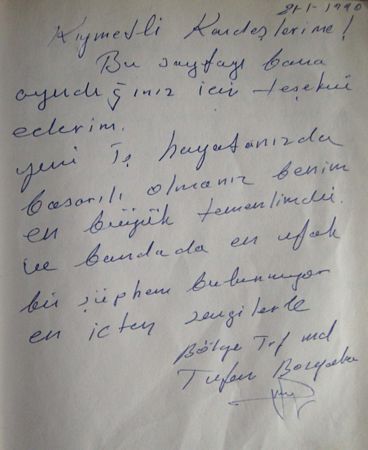 21-1-1990
Kıymetli Kardeşlerime!
Bu sayfayı bana
ayırdığınız için teşekür
ederim.
yeni İş hayatanızda
basarılı olmanız benim
en büyük temenlimdir.
ve bundada en ufak
bir şüphem bulunmuyor
en içten sevgilerle
Bölge Trf md